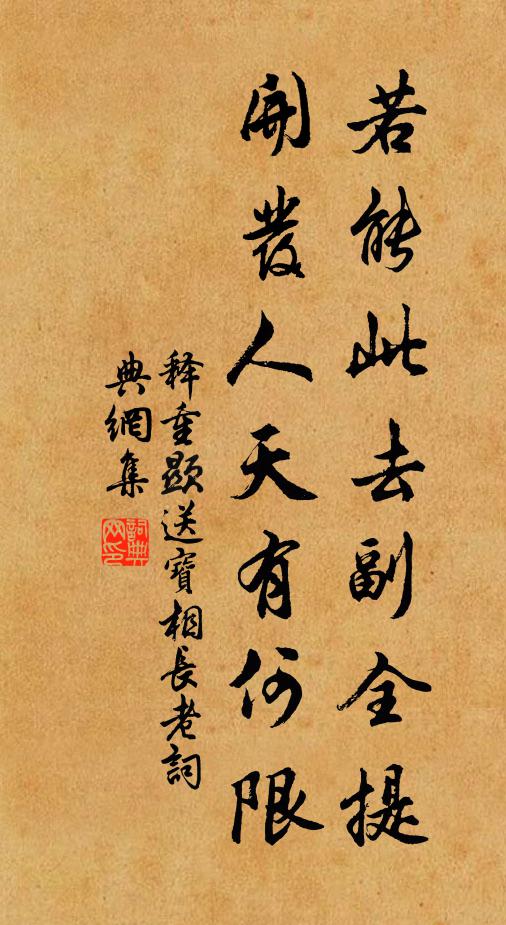 若能此去副全提
開發人天有何限
释重顯送寶相長老詞
典網集
詞典网印